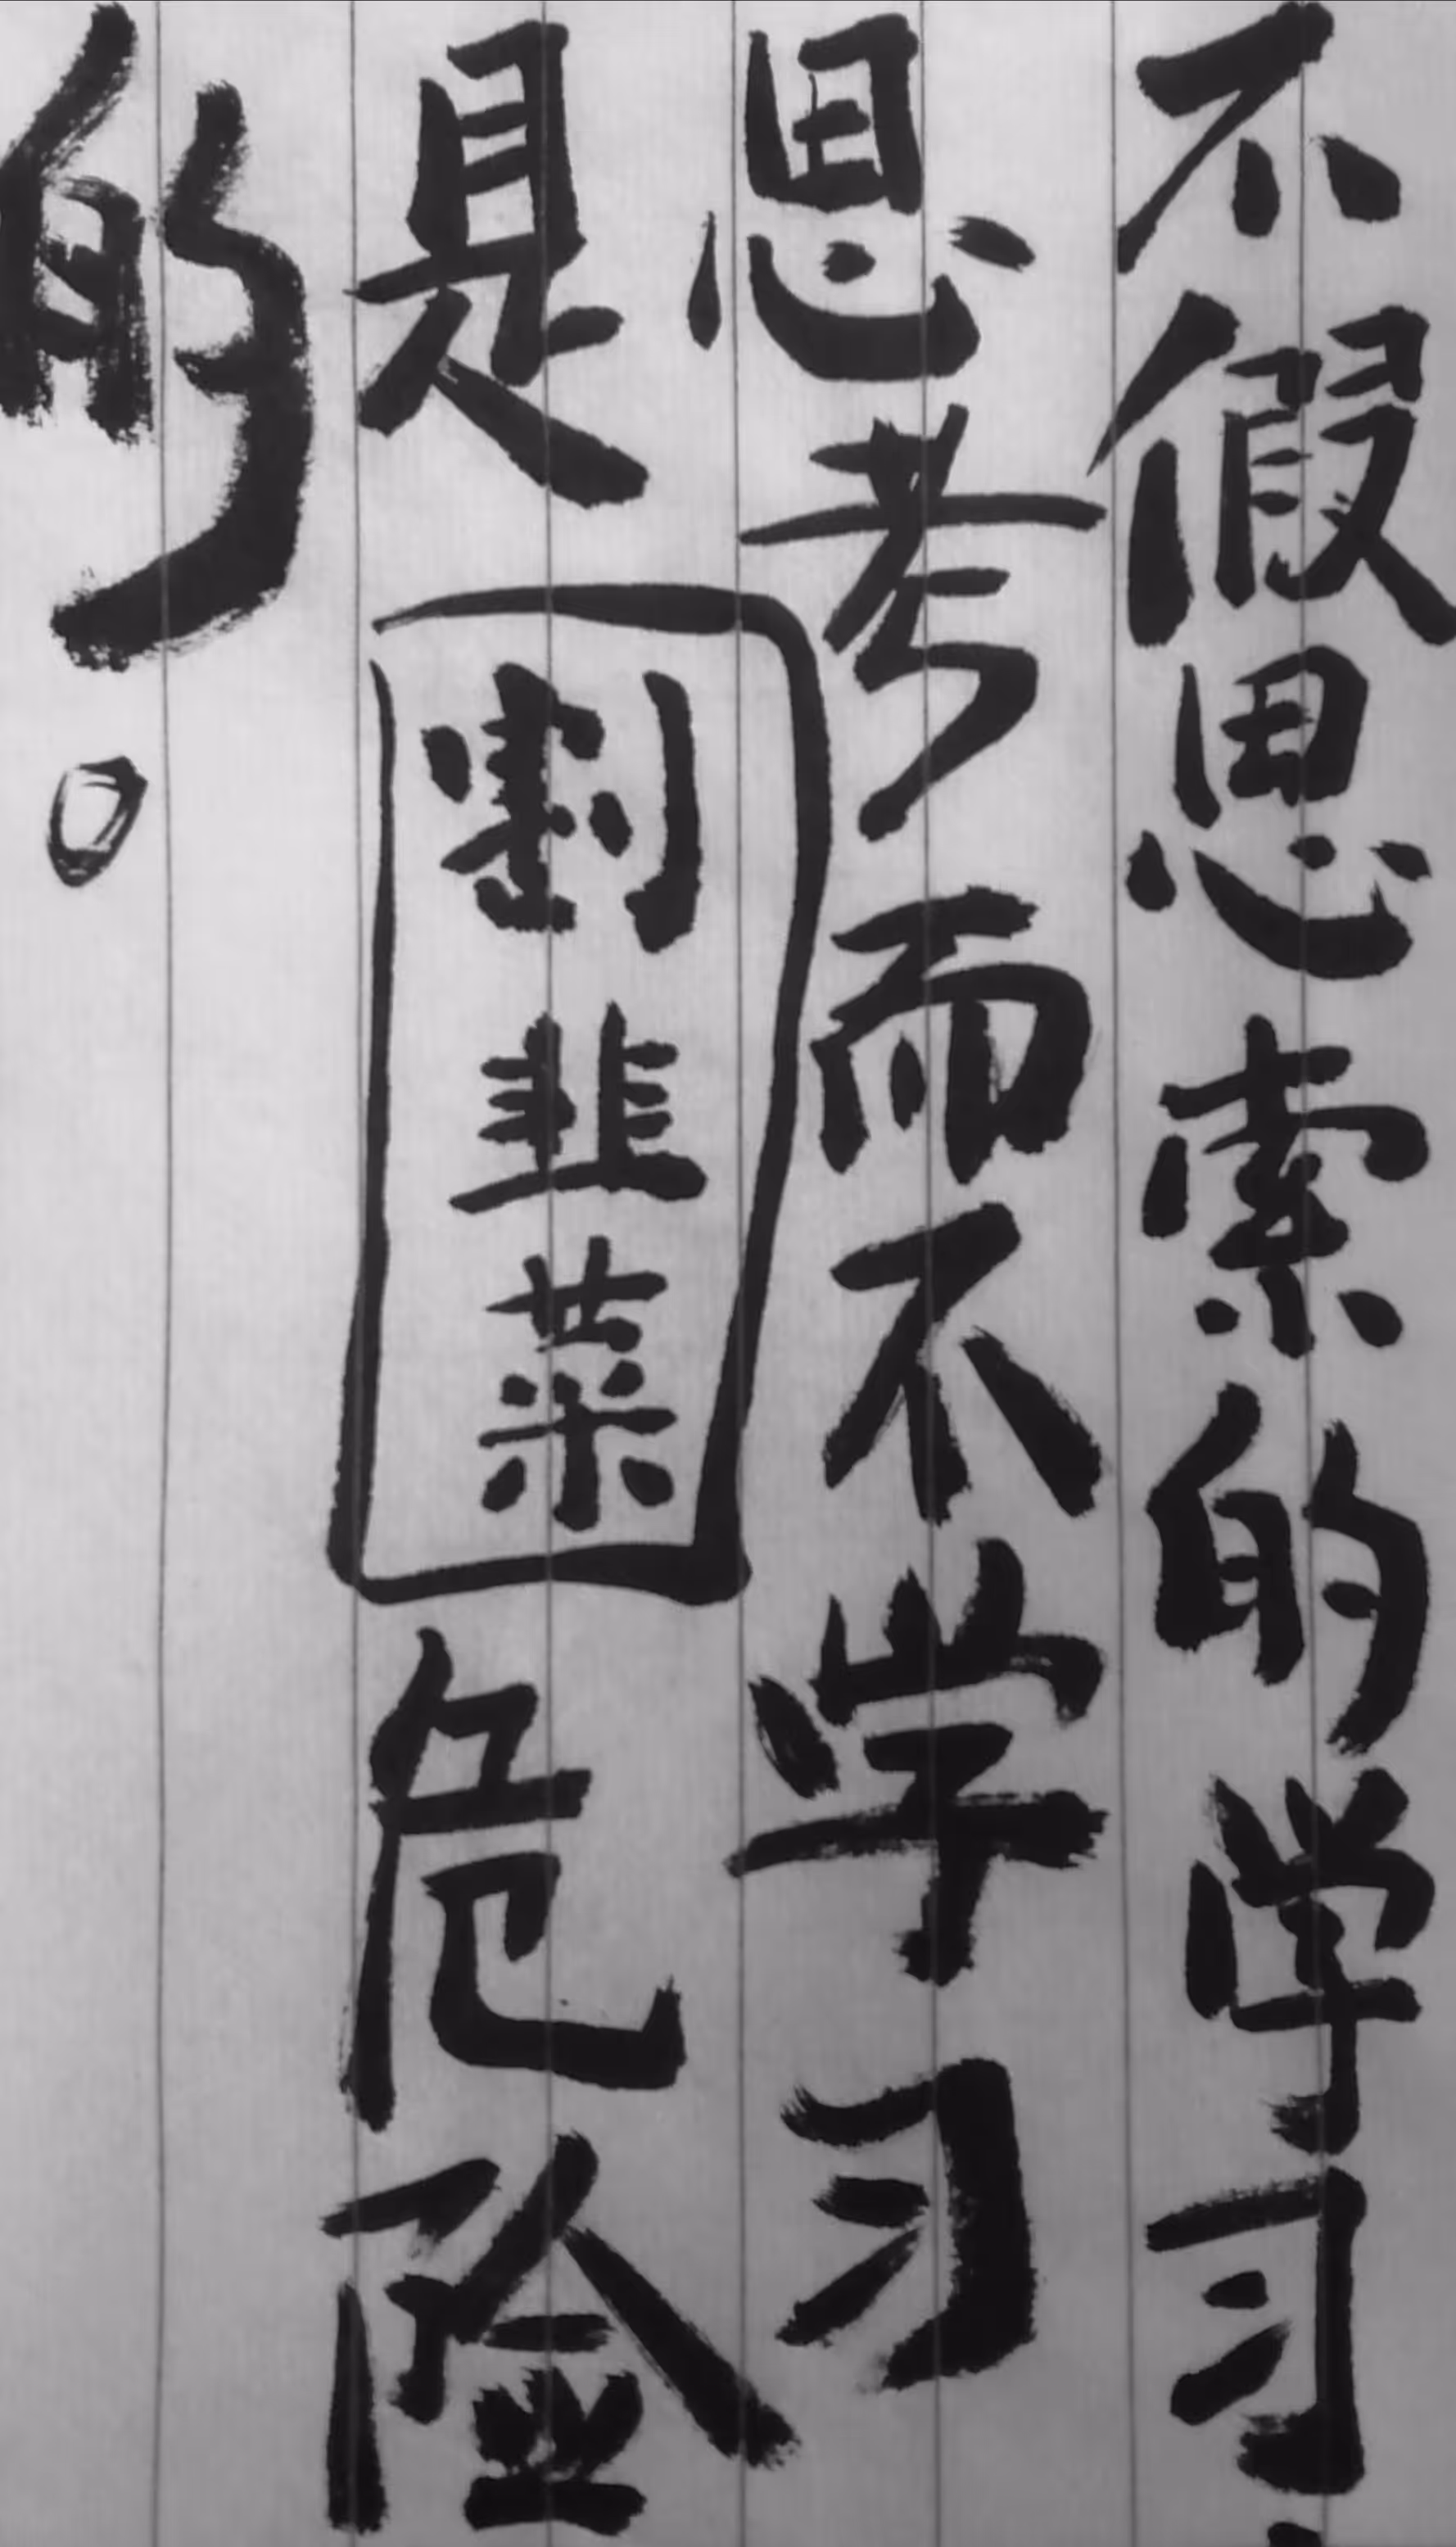 不假思索的学习
思考而不学习
是割韭菜危险
的。